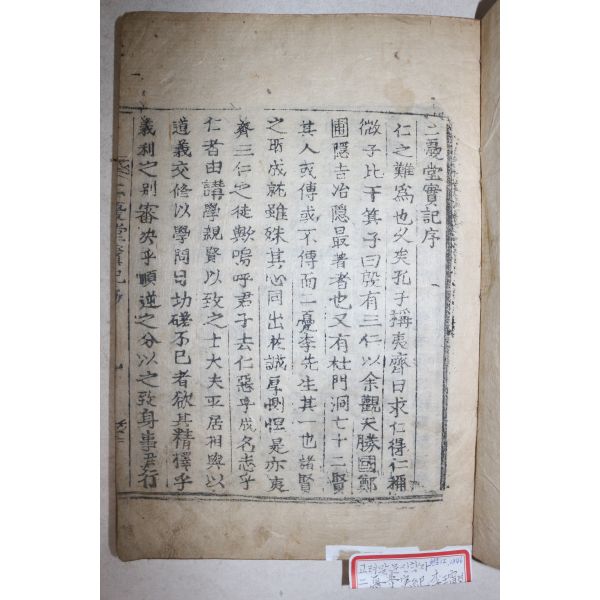 二憂堂實記序
仁之難爲也久矣孔子稱夷齊曰求仁得仁稱
微子比干箕子曰殷有三仁以余觀夫勝國鄭
圃隱吉冶隱最著者也又有杜門洞七十二賢
其人或傳或不傳而二憂李先生其一也諸賢
之所成就雖殊其心同出於誠厚惻怛是亦夷
齊三仁之徒歟嗚呼君子去仁惡乎成名志乎
仁者由講學親賢以致之士大夫平居相與以
道義交修以學問日切磋不已者欲其精擇乎
義利之別審決乎順逆之分以之致身事君行
二憂堂實記序
고려말 문신학자